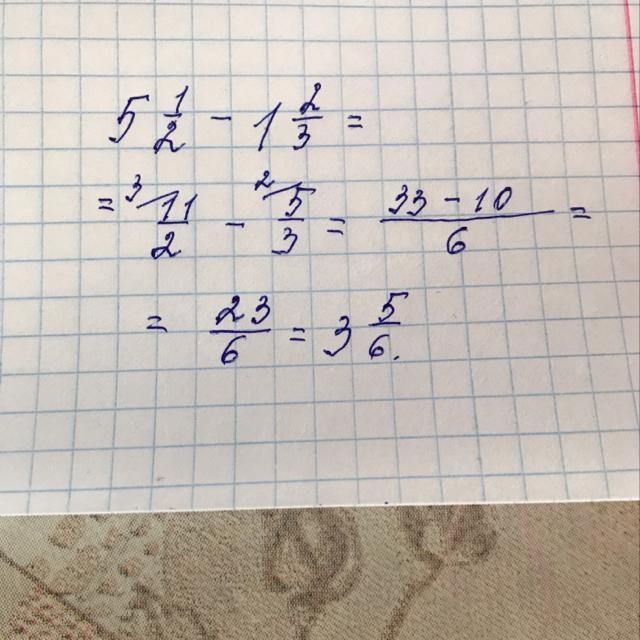 5 1/2 - 1 2/3 =
= ³⁄ 11/2 - ²⁄ 5/3 = (33 - 10)/6 =
= 23/6 = 3 5/6.